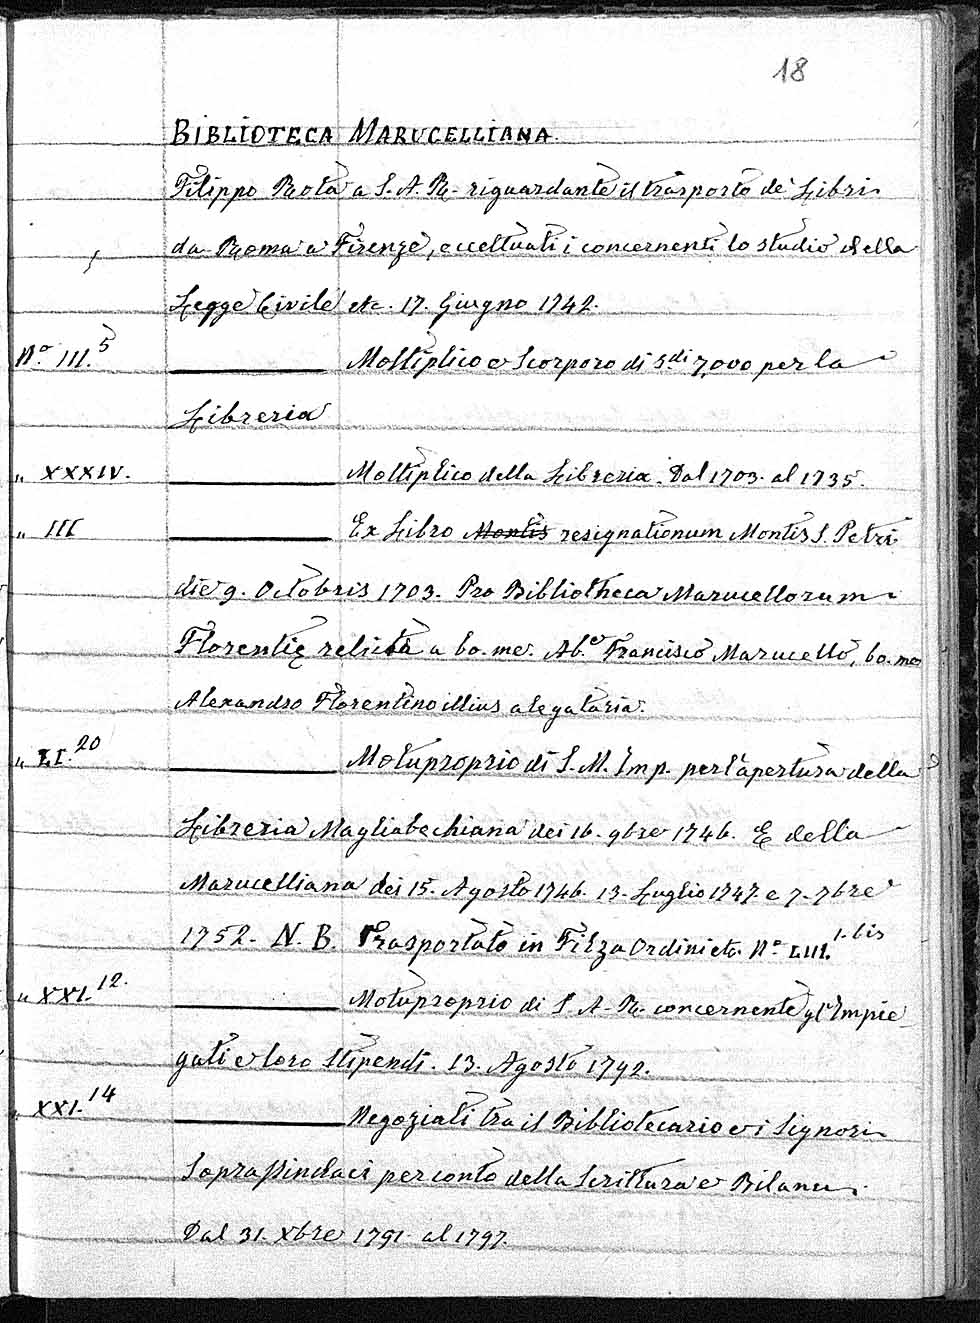 18
BIBLIOTECA MARUCELLIANA.
Filippo Rota a S. A. R. riguardante il trasporto de' Libri
da Roma a Firenze, eccettuati i concernenti lo studio della
Legge Civile etc. 17. Giugno 1742.
N.º III.5 ——— Moltiplico e Scorporo di S.di 7,000 per la
Libreria
„ XXXIV. ——— Moltiplico della Libreria. Dal 1703. al 1735.
„ III ——— Ex Libro Montis resignationum Montis S. Petri
die 9. Octobris 1703. Pro Bibliotheca Marucellorum
Florentię relicta a bo. me. Ab.e Francisco Marucello, bo. me
Alexandro Florentino illius a legataria.
„ LI.20 ——— Motuproprio di S. M. Imp. per l'apertura della
Libreria Magliabechiana dei 16. 9bre 1746. E della
Marucelliana dei 15. Agosto 1746. 13. Luglio 1747. e 7. 7bre
1752. N. B. Trasportato in Filza Ordini etc. N.º LIII.1. bis
„ XXI.12. ——— Motuproprio di S. A. R. concernente gl'Impie-
gati e loro stipendi. 13. Agosto 1792.
„ XXI.14 ——— Negoziati tra il Bibliotecario e i Signori
Soprassindaci per conto della Scrittura e Bilanci.
Dal 31. Xbre 1791. al 1797.